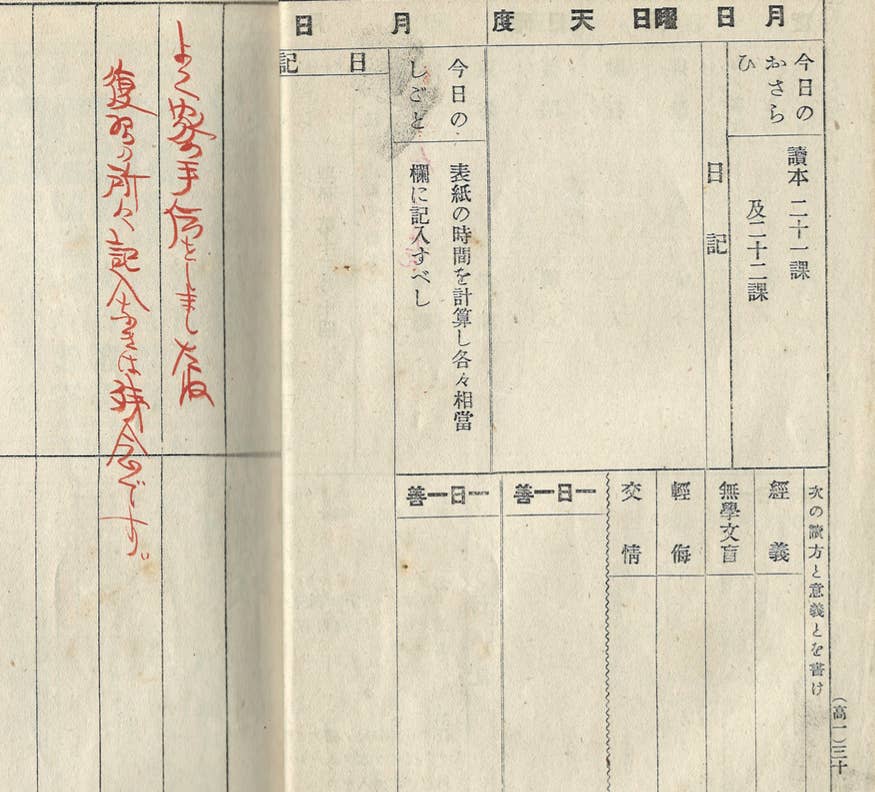 月 日 日曜 天 度
今日の
おさら
ひ
讀本 二十一課
及二十二課
日 記
次の讀方と意義とを書け
經義
無學文盲
輕侮
交情
一日一善
一日一善
(高一)三十
月 日
今日の
しごと
表紙の時間を計算し各々相當
欄に記入すべし
日 記
よく 手傳をしました
復習の所々記入なきは残念です。